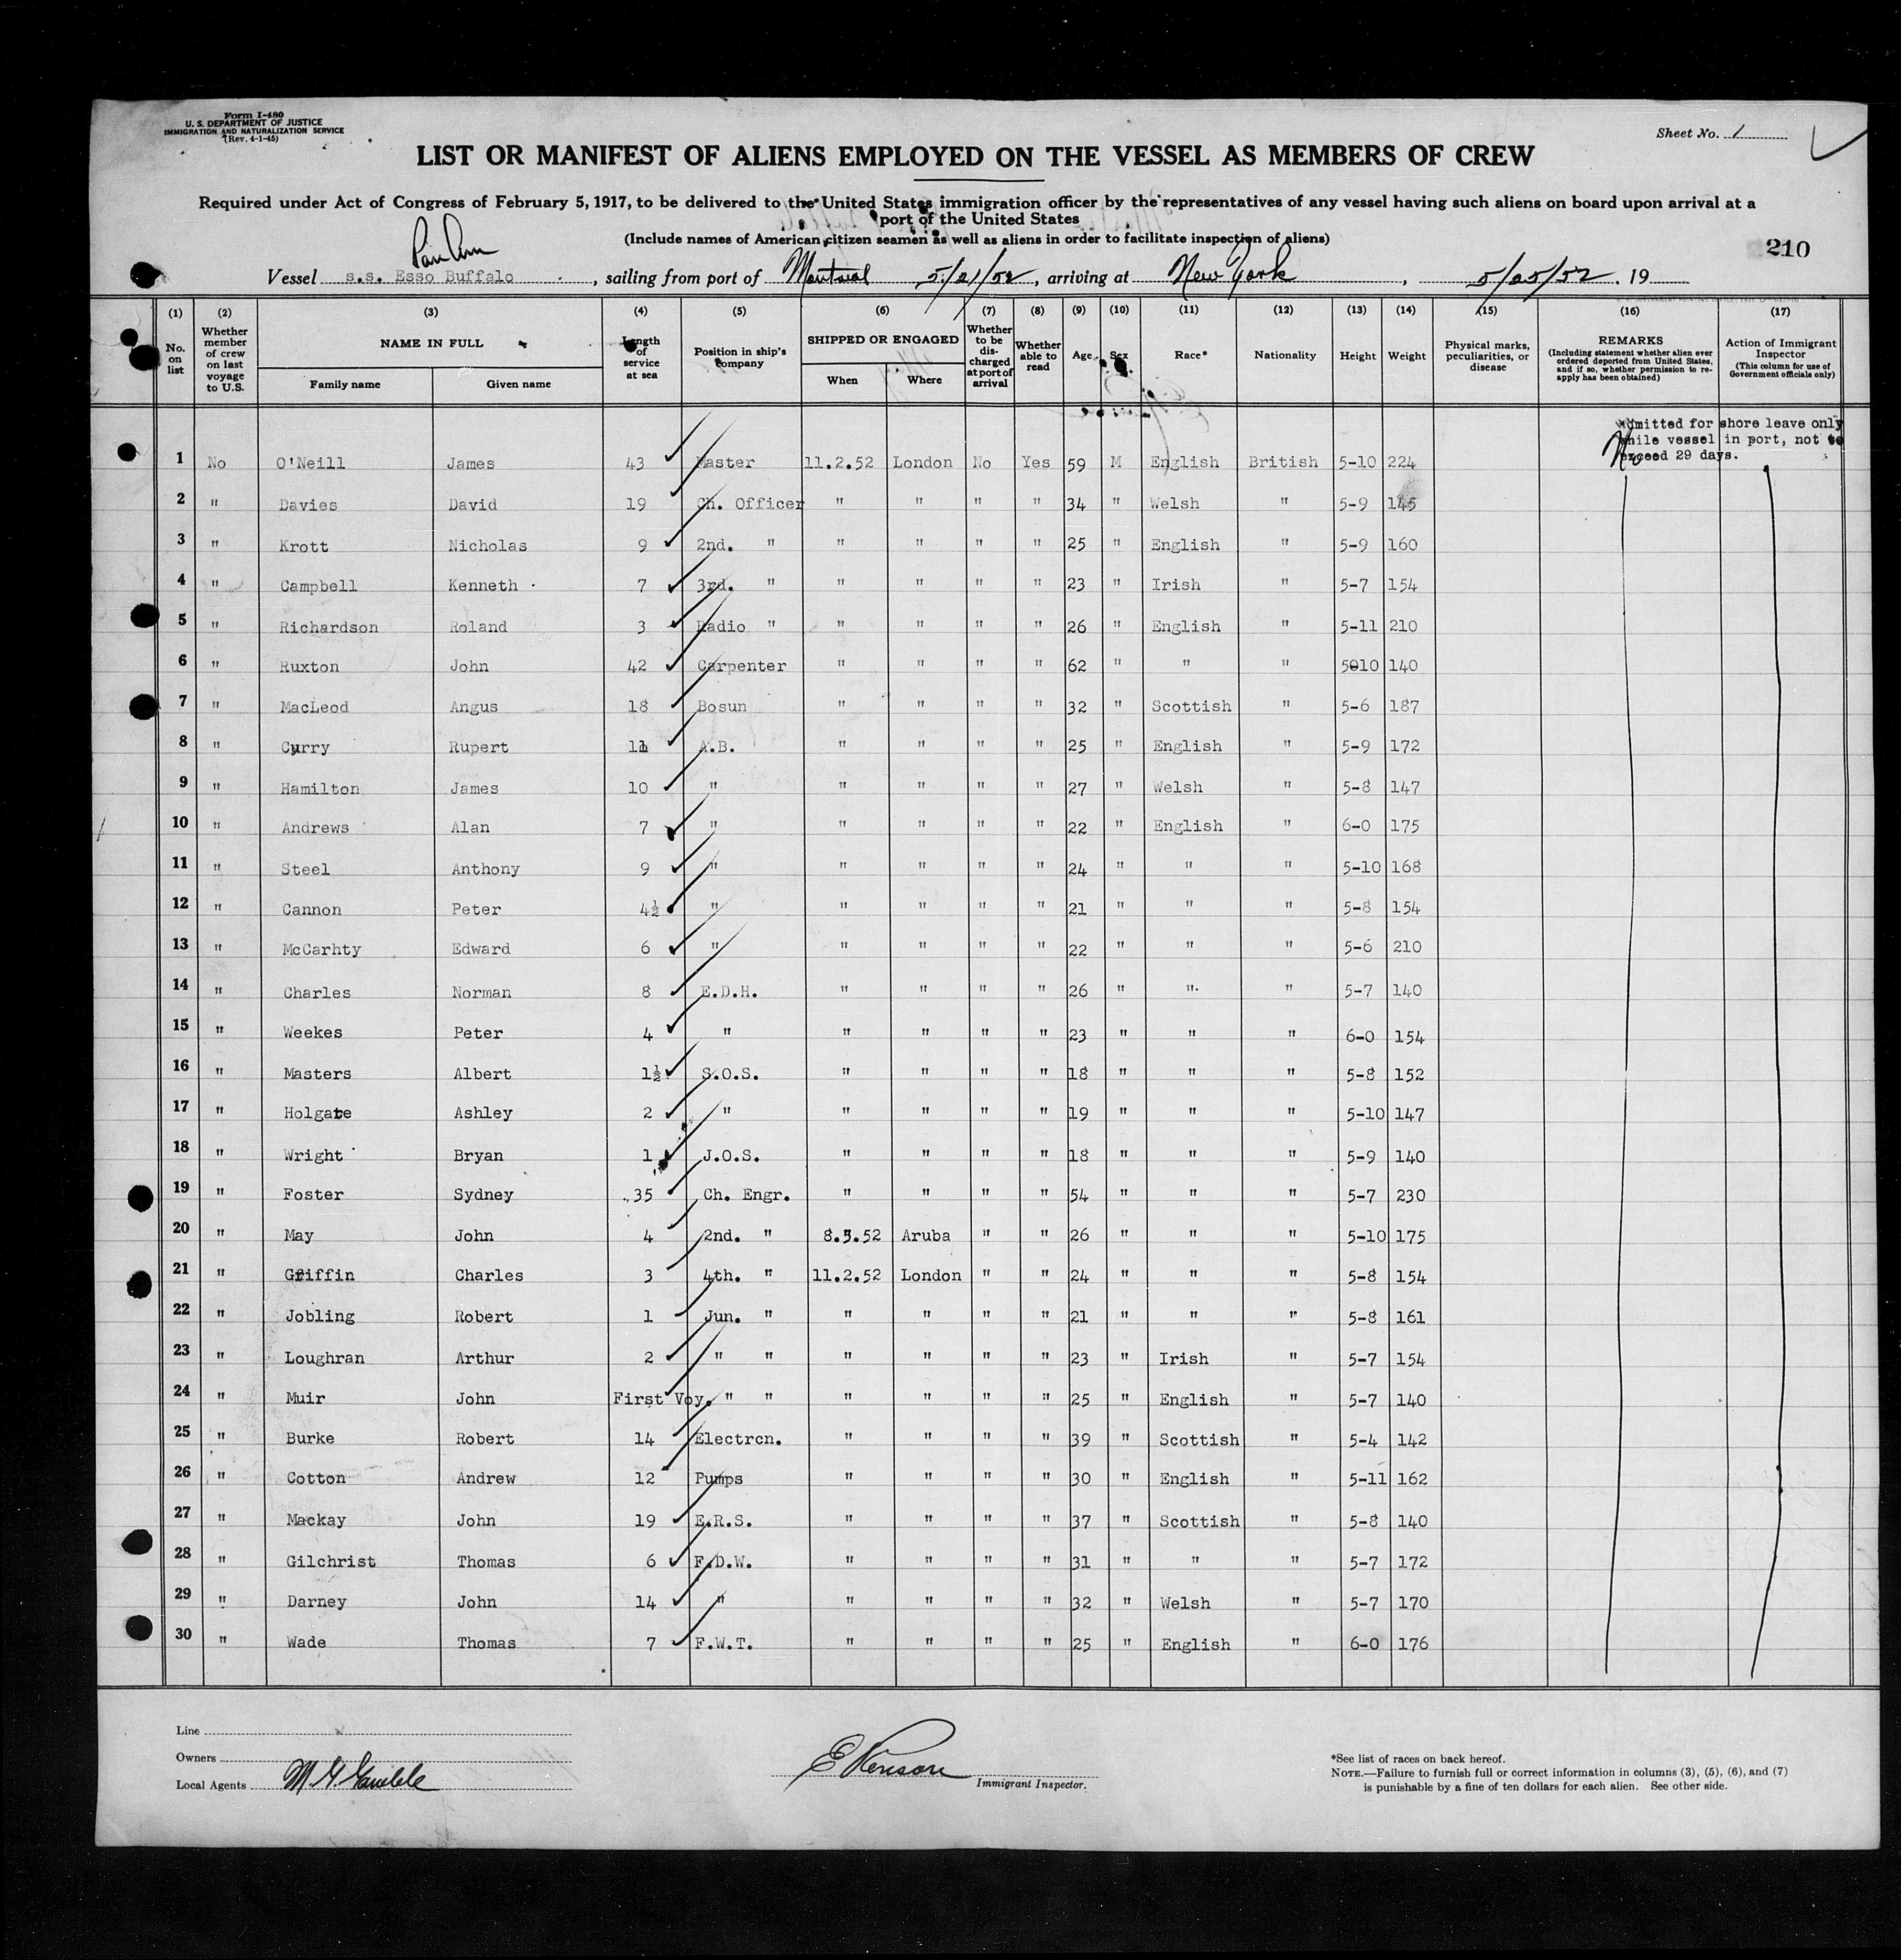 Form I-480
U. S. DEPARTMENT OF JUSTICE
IMMIGRATION AND NATURALIZATION SERVICE
(Rev. 4-1-45)
Sheet No. 1
LIST OR MANIFEST OF ALIENS EMPLOYED ON THE VESSEL AS MEMBERS OF CREW
Required under Act of Congress of February 5, 1917, to be delivered to the United States immigration officer by the representatives of any vessel having such aliens on board upon arrival at a
port of the United States
(Include names of American citizen seamen as well as aliens in order to facilitate inspection of aliens)
210
Vessel s.s. Esso Buffalo, sailing from port of Montreal 5/21/52, arriving at New York, 5/25/52. 19
(1) (2) (3) (4) (5) (6) (7) (8) (9) (10) (11) (12) (13) (14) (15) (16) (17)
No. on list Whether member of crew on last voyage to U.S. NAME IN FULL Family name Given name Length of service at sea Position in ship's company SHIPPED OR ENGAGED When Where Whether to be discharged at port of arrival Whether able to read Age Sex Race* Nationality Height Weight Physical marks, peculiarities, or disease REMARKS (Including statement whether alien ever ordered deported from United States, and if so, whether permission to re-apply has been obtained) Action of Immigrant Inspector (This column for use of Government officials only)
Admitted for shore leave only
while vessel in port, not to
exceed 29 days.
1 No O'Neill James 43 Master 11.2.52 London No Yes 59 M English British 5-10 224 No
2 " Davies David 19 Ch. Officer " " " " 34 " Welsh " 5-9 145
3 " Krott Nicholas 9 2nd. " " " " " 25 " English " 5-9 160
4 " Campbell Kenneth 7 3rd. " " " " " 23 " Irish " 5-7 154
5 " Richardson Roland 3 Radio " " " " " 26 " English " 5-11 210
6 " Ruxton John 42 Carpenter " " " " 62 " " " 5010 140
7 " MacLeod Angus 18 Bosun " " " " 32 " Scottish " 5-6 187
8 " Curry Rupert 11 A.B. " " " " 25 " English " 5-9 172
9 " Hamilton James 10 " " " " " 27 " Welsh " 5-8 147
10 " Andrews Alan 7 " " " " " 22 " English " 6-0 175
11 " Steel Anthony 9 " " " " " 24 " " " 5-10 168
12 " Cannon Peter 4½ " " " " " 21 " " " 5-8 154
13 " McCarhty Edward 6 " " " " " 22 " " " 5-6 210
14 " Charles Norman 8 E.D.H. " " " " 26 " " " 5-7 140
15 " Weekes Peter 4 " " " " " 23 " " " 6-0 154
16 " Masters Albert 1½ S.O.S. " " " " 18 " " " 5-8 152
17 " Holgate Ashley 2 " " " " " 19 " " " 5-10 147
18 " Wright Bryan 1 J.O.S. " " " " 18 " " " 5-9 140
19 " Foster Sydney 35 Ch. Engr. " " " " 54 " " " 5-7 230
20 " May John 4 2nd. " 8.5.52 Aruba " " 26 " " " 5-10 175
21 " Griffin Charles 3 4th. " 11.2.52 London " " 24 " " " 5-8 154
22 " Jobling Robert 1 Jun. " " " " " 21 " " " 5-8 161
23 " Loughran Arthur 2 " " " " " " 23 " Irish " 5-7 154
24 " Muir John First Voy. " " " " " " 25 " English " 5-7 140
25 " Burke Robert 14 Electrcn. " " " " 39 " Scottish " 5-4 142
26 " Cotton Andrew 12 Pumps " " " " 30 " English " 5-11 162
27 " Mackay John 19 E.R.S. " " " " 37 " Scottish " 5-8 140
28 " Gilchrist Thomas 6 F.D.W. " " " " 31 " " " 5-7 172
29 " Darney John 14 " " " " " 32 " Welsh " 5-7 170
30 " Wade Thomas 7 F.W.T. " " " " 25 " English " 6-0 176
Line
Owners
Local Agents
Immigrant Inspector.
*See list of races on back hereof.
NOTE.—Failure to furnish full or correct information in columns (3), (5), (6), and (7)
is punishable by a fine of ten dollars for each alien. See other side.